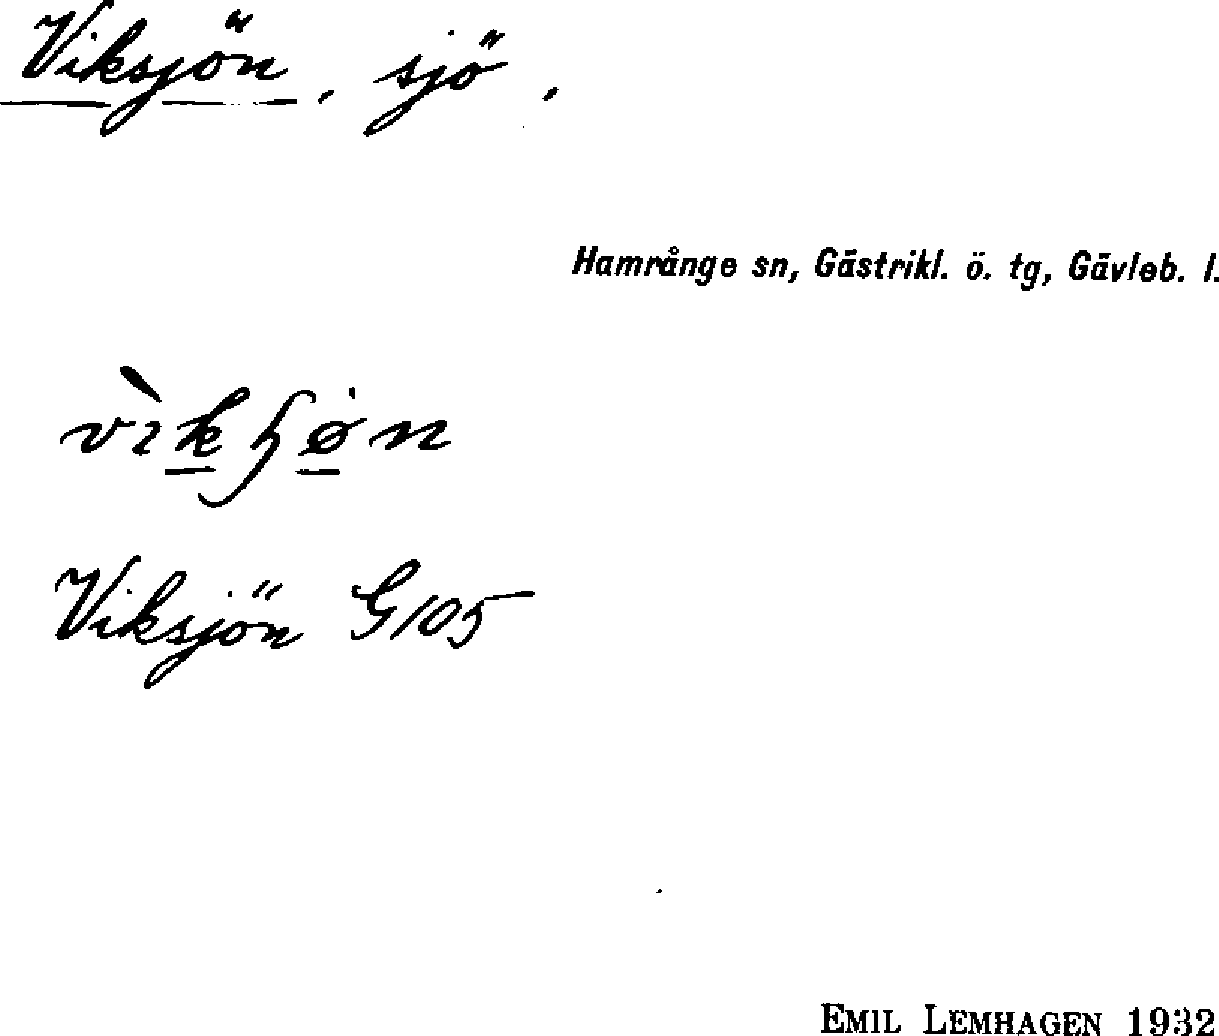 Viksjön, sjö,
Hamrånge sn, Gästrikl. ö. tg, Gävleb. l.
Viksjön G105
EMIL LEMHAGEN 1932